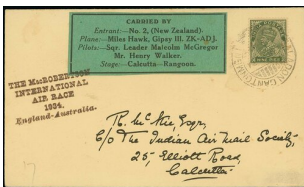 CARRIED BY
Entrant:—No. 2, (New Zealand)
Plane:—Miles Hawk, Gipsy III. ZK-ADJ.
Pilots:—Sqr. Leader Malcolm McGregor
Mr. Henry Walker.
Stage:—Calcutta—Rangoon.
THE MACROBERTSON
INTERNATIONAL
AIR RACE
1934.
England-Australia.
R. Esqr,
c/o The Indian Air Mail Society,
25, Elliott Road,
Calcutta